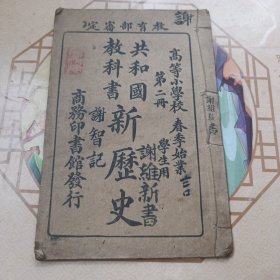 謝
教育部審定
高等小學校
春季始業
第二冊
學生用
謝維新書
共和國
教科書
新歷史
謝智記
商務印書館發行